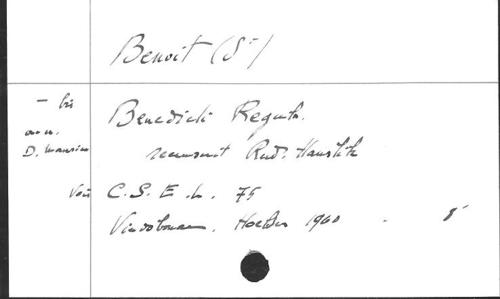 Benoit (St)
– bis
Benedicti Regula.
D. Mansion
recensuit Rud. Hanslik
Voir
C. S. E. L. 75
Vindobonae. Hoelder 1960 - 8°